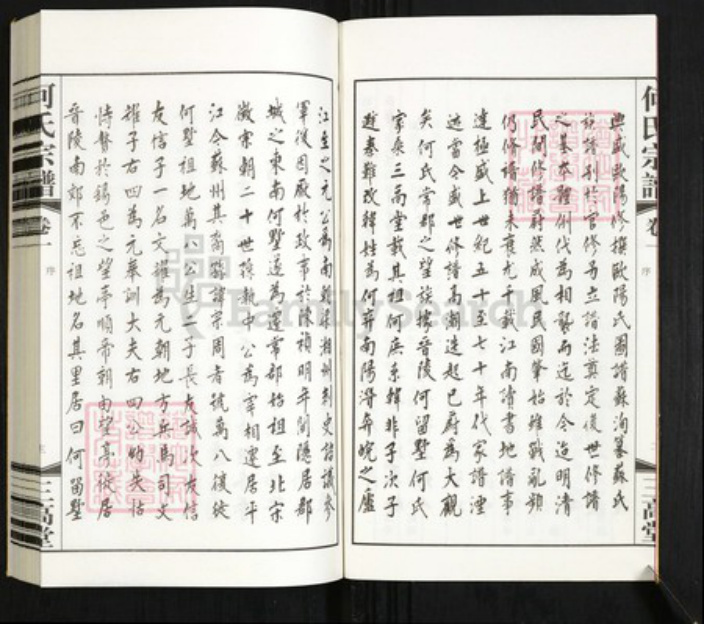 何氏宗譜
卷一
序
三高堂
典盛歐陽修撰歐陽氏圖譜蘇洵纂蘇氏
族譜刊於官修另立譜法奠定後世修譜
之基本體例代為相襲而迄於今迨明清
民間修譜蔚然成風民國肇始雖戰亂頻
仍修譜猶未衰尤千載江南讀書地譜事
達極盛上世紀五十至七十年代家譜湮
迹當今盛世修譜高潮迭起已蔚為大觀
矣何氏常郡之望族據晉陵何留墅何氏
家乘三高堂載其祖何庶系韓非子次子
避秦難改韓姓為何弃南陽潛奔皖之廬
江至之元公為南朝梁湘州刺史諮議參
軍後因厭於政事於陳禎明年間隱居郡
城之東南何墅遂為遷常郡始祖至北宋
徽宗朝二十世孫執中公為宰相遷居平
江今蘇州其裔諱宗周者號萬八復徙
何墅祖地萬八公生二子長友誠次友信
友信子一名文耀為元朝地方兵馬司丈
雄子右四為元奉訓大夫右四公幼失怙
恃贅於錫邑之望亭順帝朝由望亭徙居
晉陵南郊不忘祖地名其里居曰何留墅
何氏宗譜
卷一
序
三高堂
FamilySearch